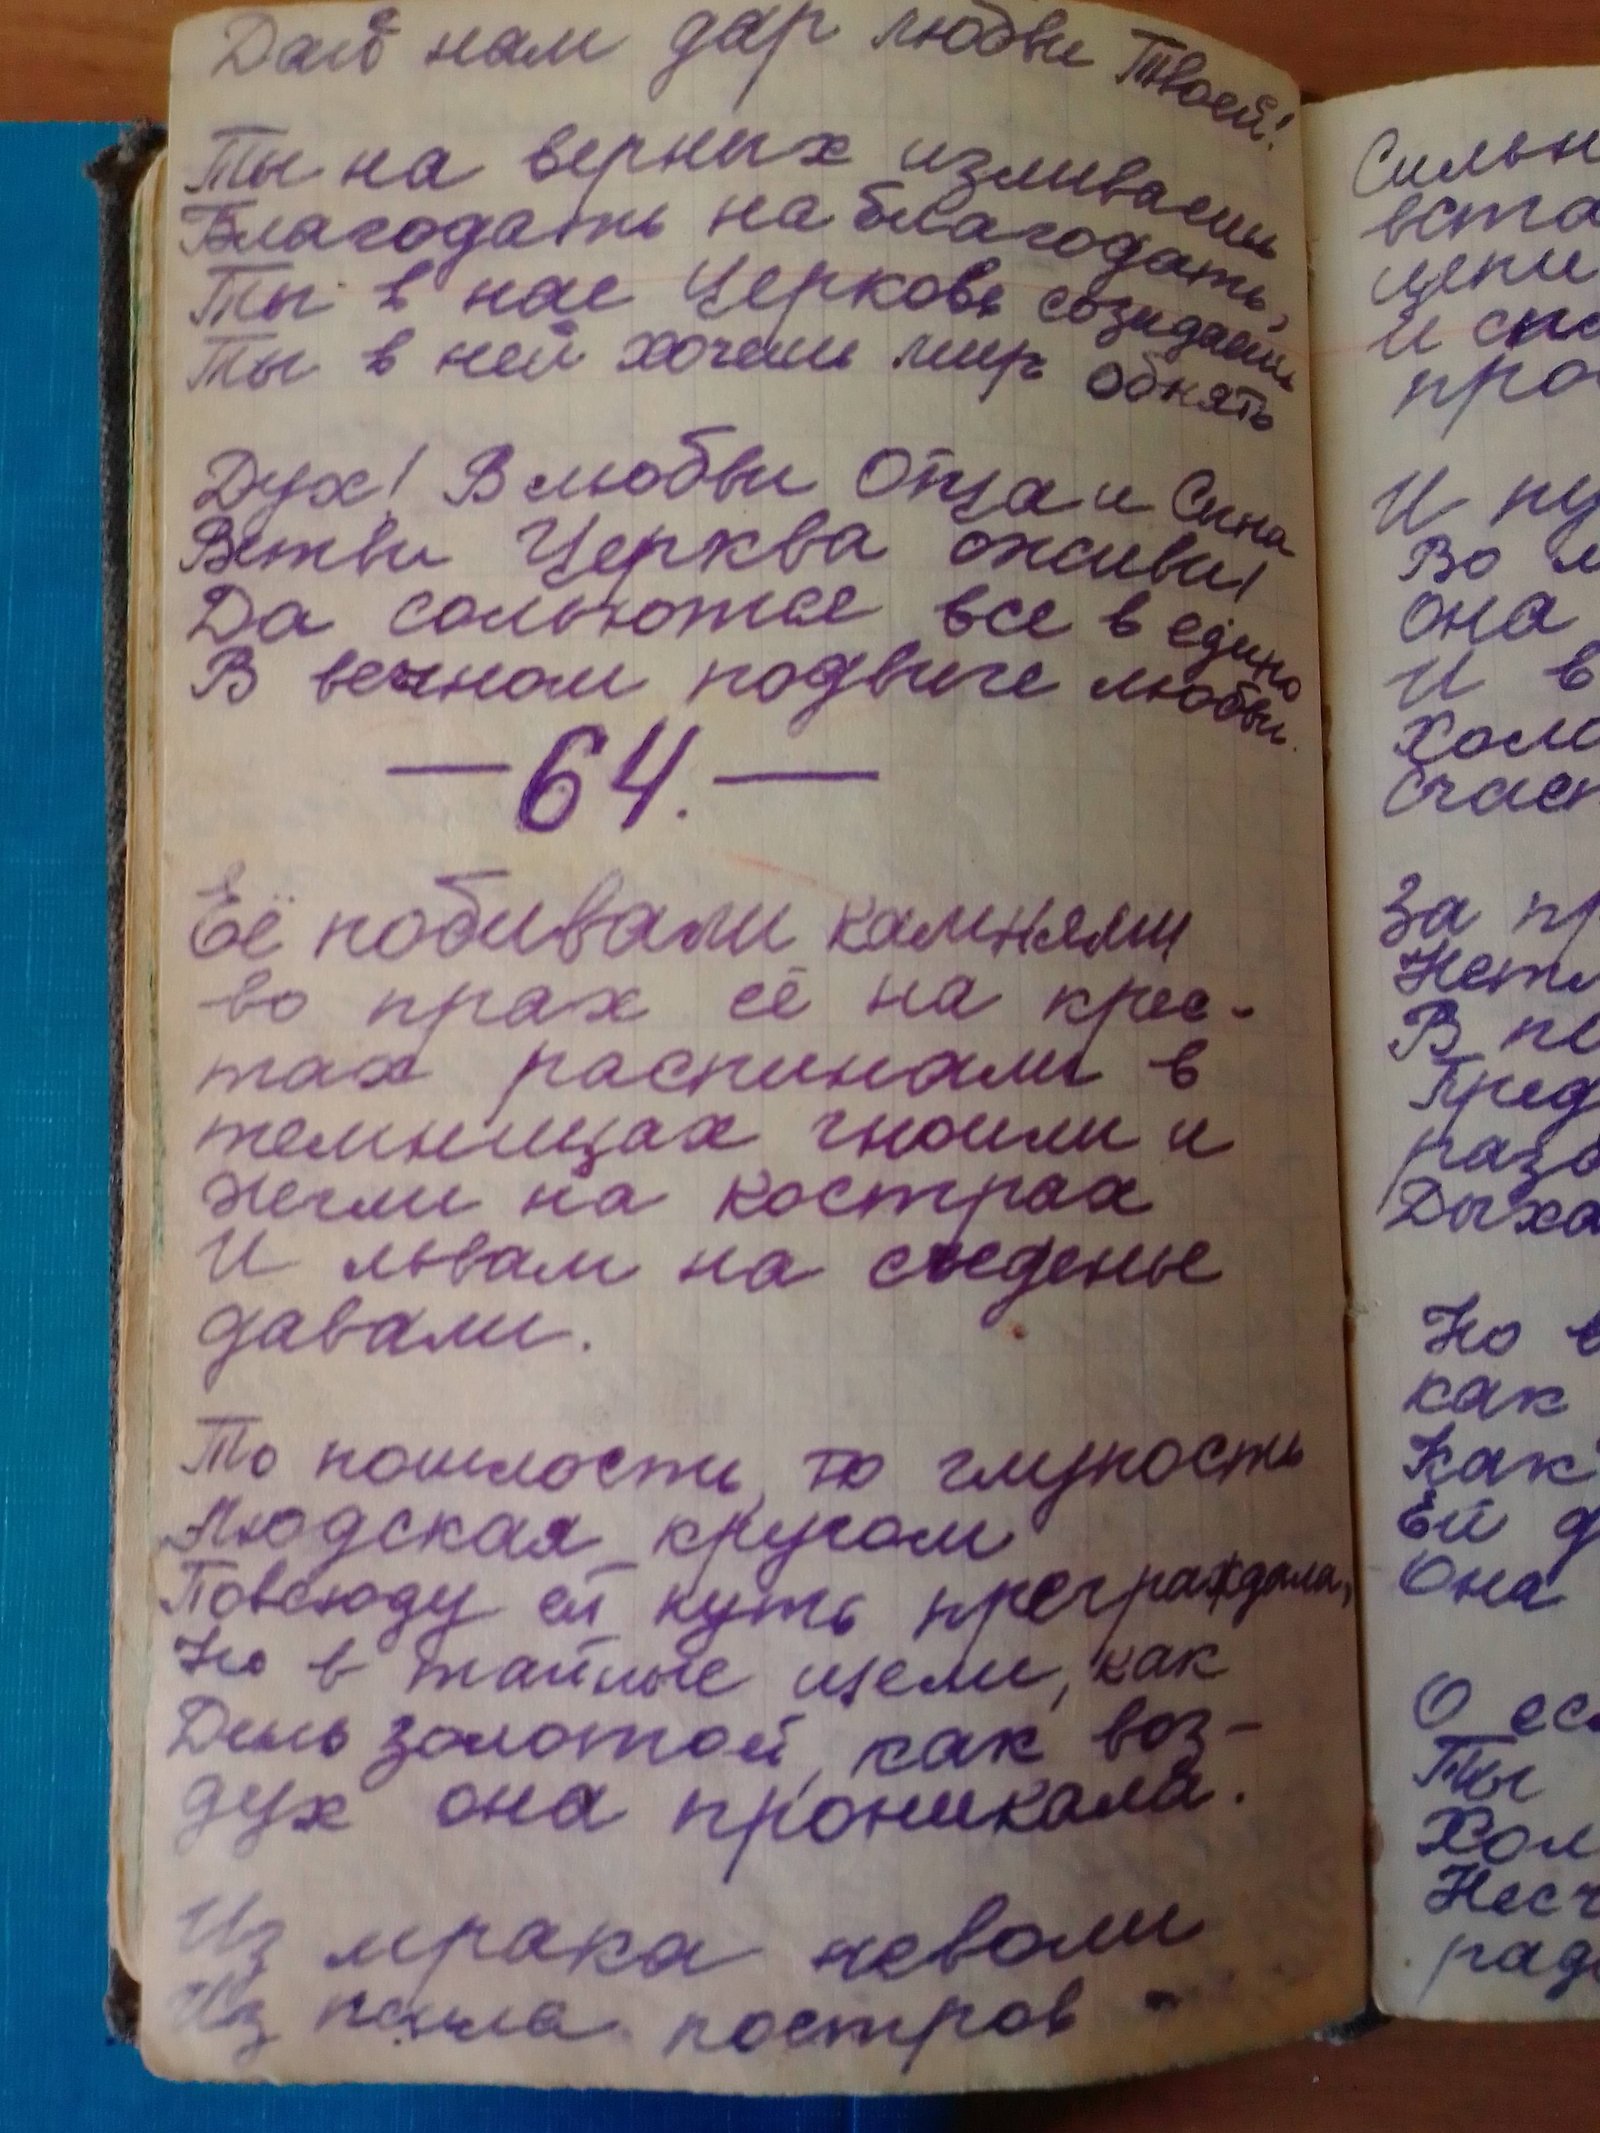 Дай нам дар любви Твоей!
Ты на верных изливаешь
Благодать на благодать,
Ты в нас Церковь созидаешь
Ты в ней хочешь мир обнять
Дух! В любви Отца и Сына
Ветви Церква оживи!
Да сольются все в едино
В вечном подвиге любви.
— 64. —
Её побивали камнями
во прах её на крес-
тах распинали в
темницах гноили и
жгли на кострах
И львам на съеденье
давали.
То пошлость, то глупость
Людская кругом
Повсюду ей путь преграждала,
Но в тайные щели, как
День золотой, как воз-
дух она проникала.
Из мрака неволи
Из пепла костров -
Сильн
вста
цепи
И ска
про
И пу
Во м
она
И в
холо
Счаст
За пр
Нетл
В пе
Пред
разв
Дыха
Но в
как
Как
Ей д
Она
О есл
Ты
Хол
Несч
рад